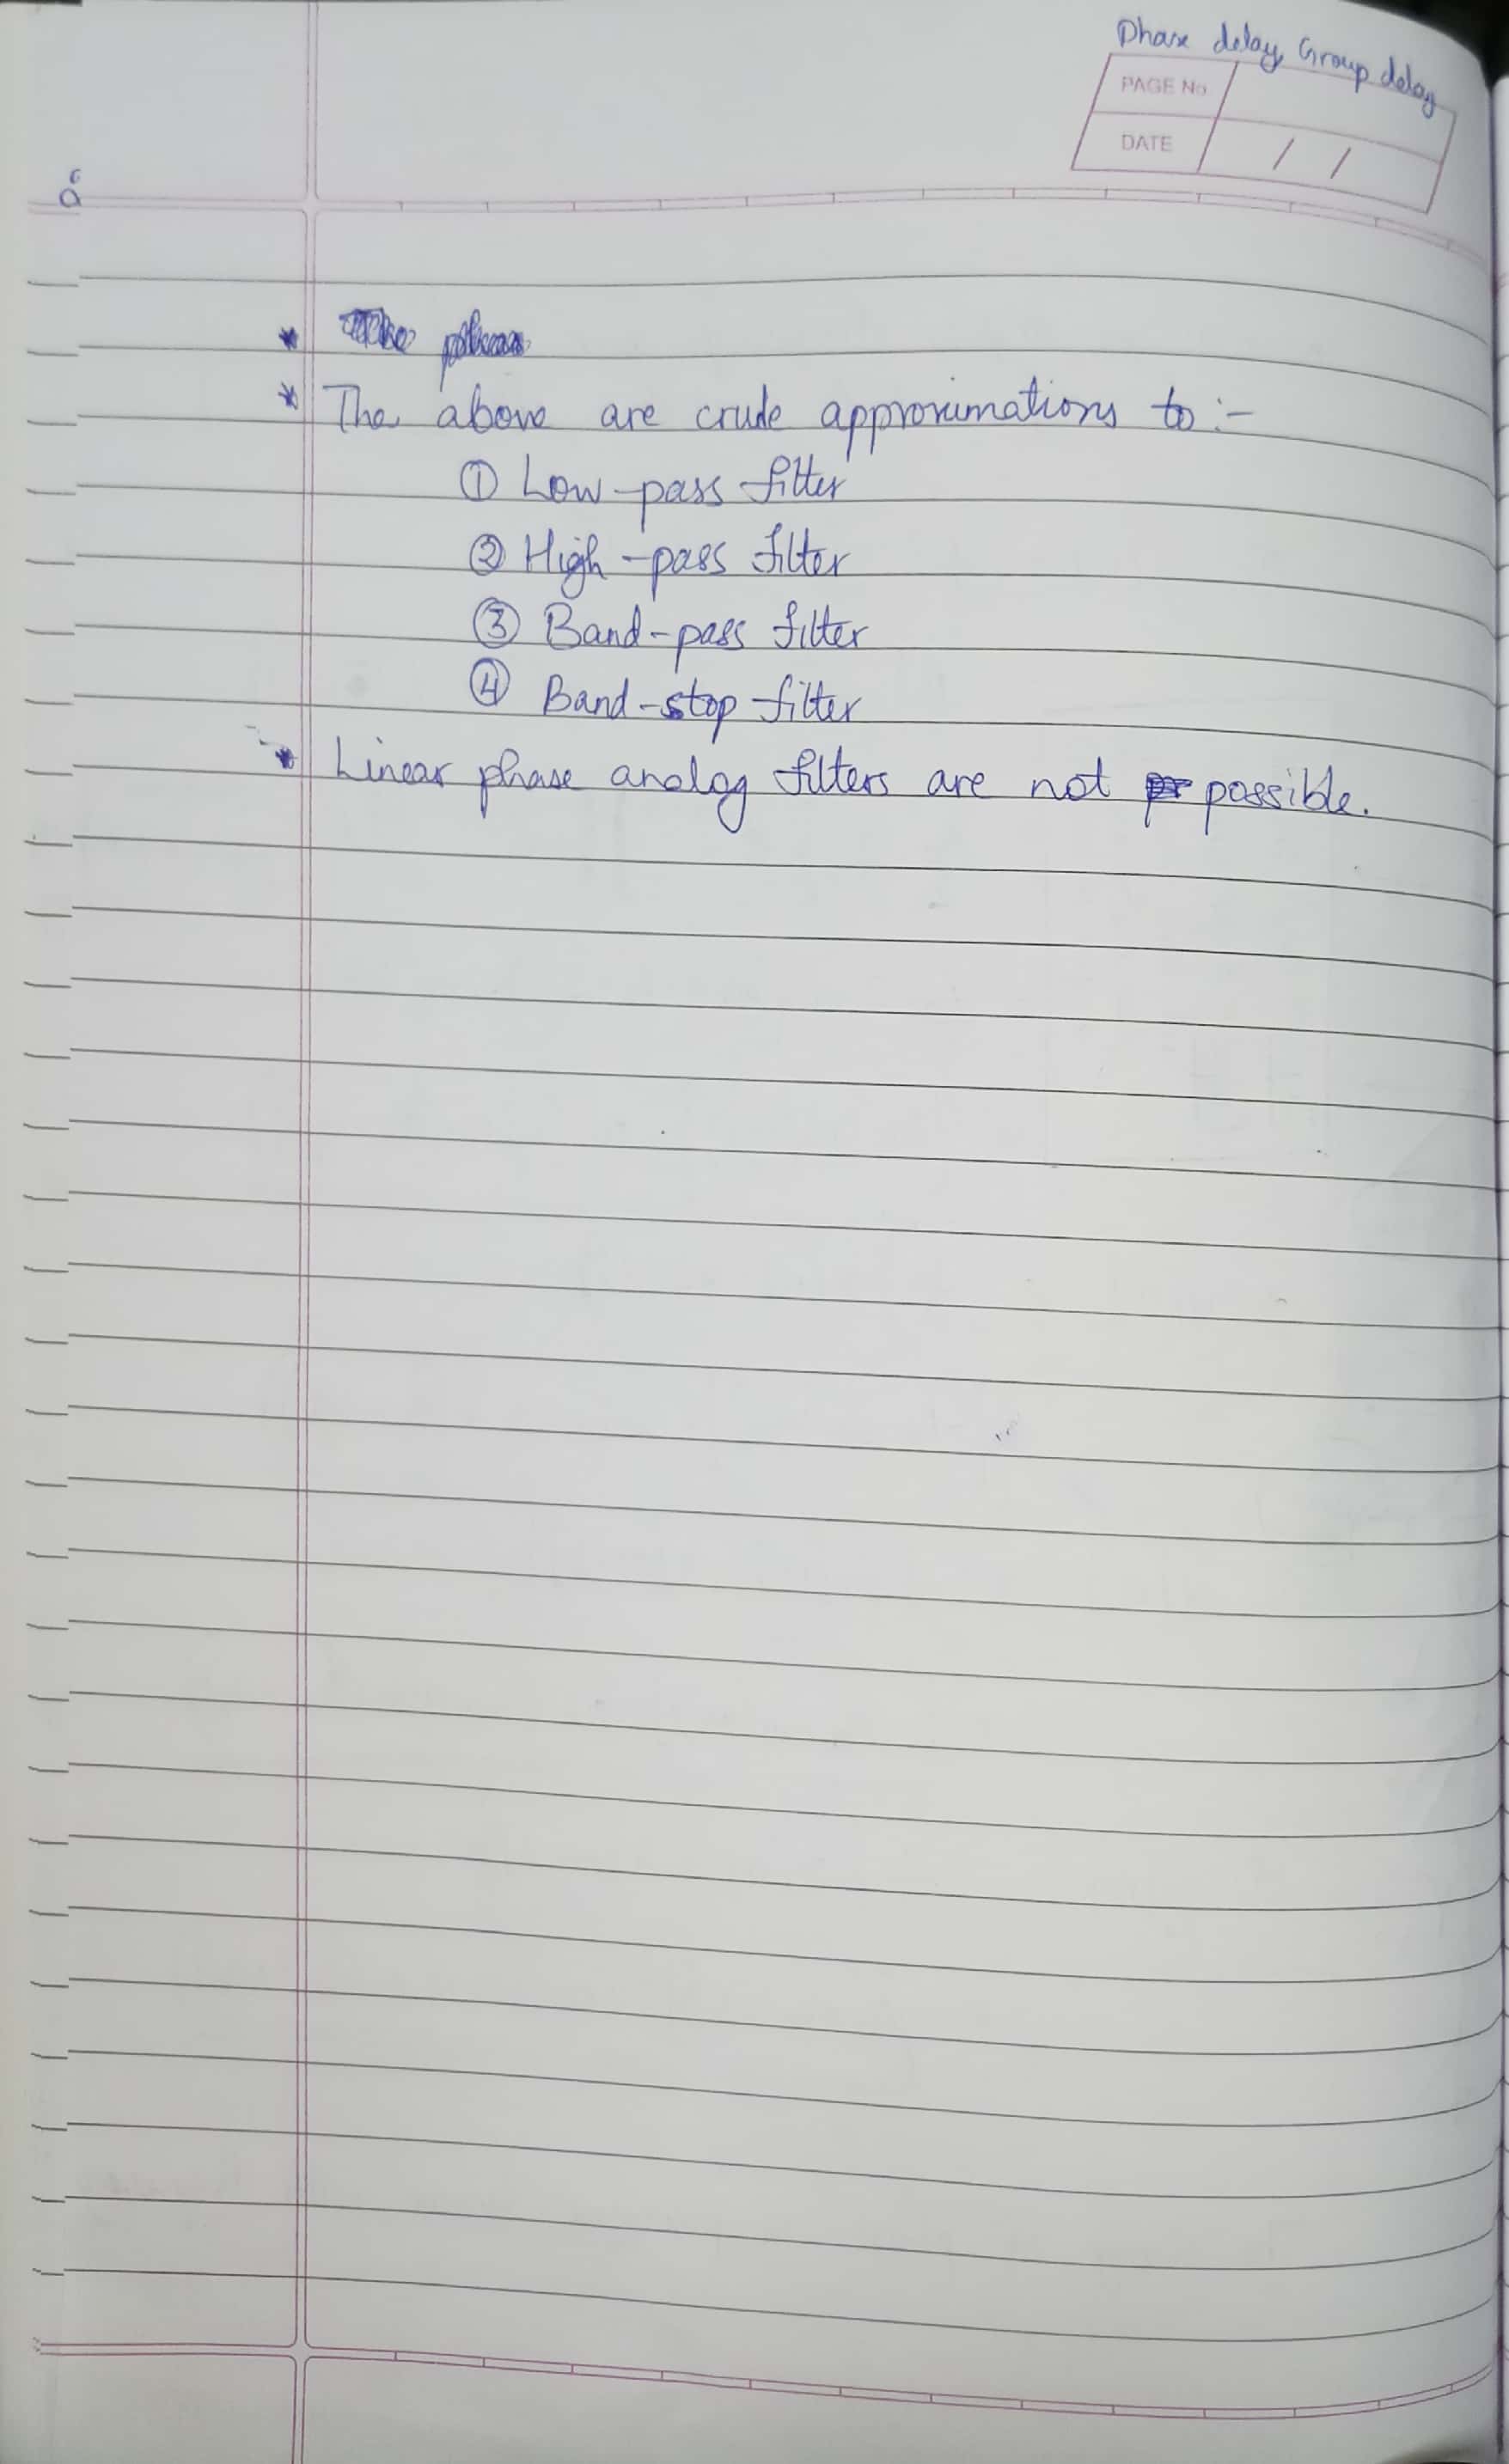 Phase delay, Group delay
PAGE No
DATE / /
* The above are crude approximations to :-
① Low-pass filter
② High-pass filter
③ Band-pass filter
④ Band-stop filter
* Linear phase analog filters are not possible.